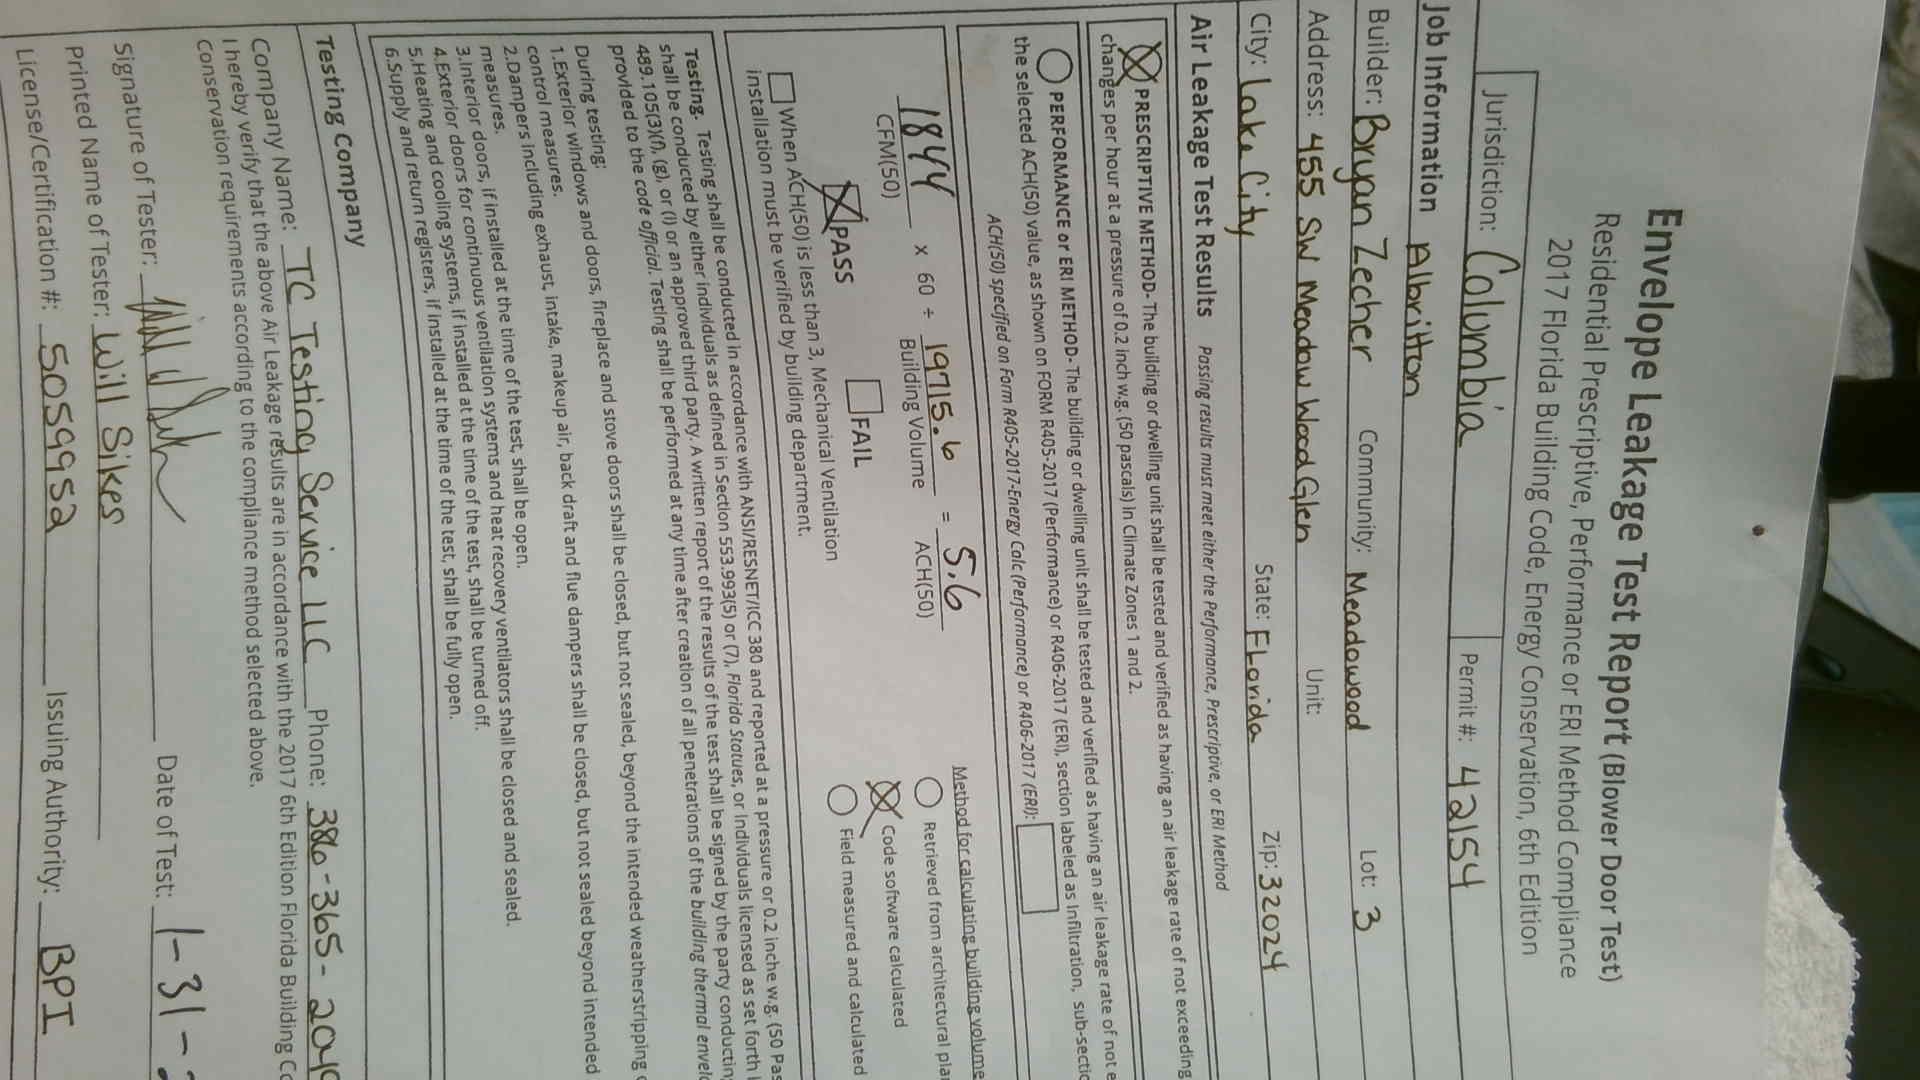 Envelope Leakage Test Report (Blower Door Test)
Residential Prescriptive, Performance or ERI Method Compliance
2017 Florida Building Code, Energy Conservation, 6th Edition
Jurisdiction: Columbia Permit #: 42154
Job Information Albritton
Builder: Bryan Zecher Community: Meadowood Lot: 3
Address: 455 SW Meadow Wood Glen Unit:
City: Lake City State: FLorida Zip: 32024
Air Leakage Test Results Passing results must meet either the Performance, Prescriptive, or ERI Method
PRESCRIPTIVE METHOD- The building or dwelling unit shall be tested and verified as having an air leakage rate of not exceeding
changes per hour at a pressure of 0.2 inch w.g. (50 pascals) in Climate Zones 1 and 2.
PERFORMANCE or ERI METHOD- The building or dwelling unit shall be tested and verified as having an air leakage rate of not e
the selected ACH(50) value, as shown on FORM R405-2017 (Performance) or R406-2017 (ERI), section labeled as Infiltration, sub-sectio
ACH(50) specified on Form R405-2017-Energy Calc (Performance) or R406-2017 (ERI):
1844 x 60 ÷ 19715.6 = 5.6
CFM(50) Building Volume ACH(50)
PASS FAIL
When ACH(50) is less than 3, Mechanical Ventilation
installation must be verified by building department.
Method for calculating building volume
Retrieved from architectural pla
Code software calculated
Field measured and calculated
Testing. Testing shall be conducted in accordance with ANSI/RESNET/ICC 380 and reported at a pressure or 0.2 inche w.g. (50 Pas
shall be conducted by either individuals as defined in Section 553.993(5) or (7), Florida Statues, or individuals licensed as set forth i
489.105(3)(f), (g), or (i) or an approved third party. A written report of the results of the test shall be signed by the party conductin
provided to the code official. Testing shall be performed at any time after creation of all penetrations of the building thermal envelo
During testing:
1.Exterior windows and doors, fireplace and stove doors shall be closed, but not sealed, beyond the intended weatherstripping o
control measures.
2.Dampers including exhaust, intake, makeup air, back draft and flue dampers shall be closed, but not sealed beyond intended
measures.
3.Interior doors, if installed at the time of the test, shall be open.
4.Exterior doors for continuous ventilation systems and heat recovery ventilators shall be closed and sealed.
5.Heating and cooling systems, if installed at the time of the test, shall be turned off.
6.Supply and return registers, if installed at the time of the test, shall be fully open.
Testing Company
Company Name: TC Testing Service LLC Phone: 386-365-2049
I hereby verify that the above Air Leakage results are in accordance with the 2017 6th Edition Florida Building Co
Conservation requirements according to the compliance method selected above.
Signature of Tester: Date of Test: 1-31-
Printed Name of Tester: Will Sikes
License/Certification #: 5059952 Issuing Authority: BPI